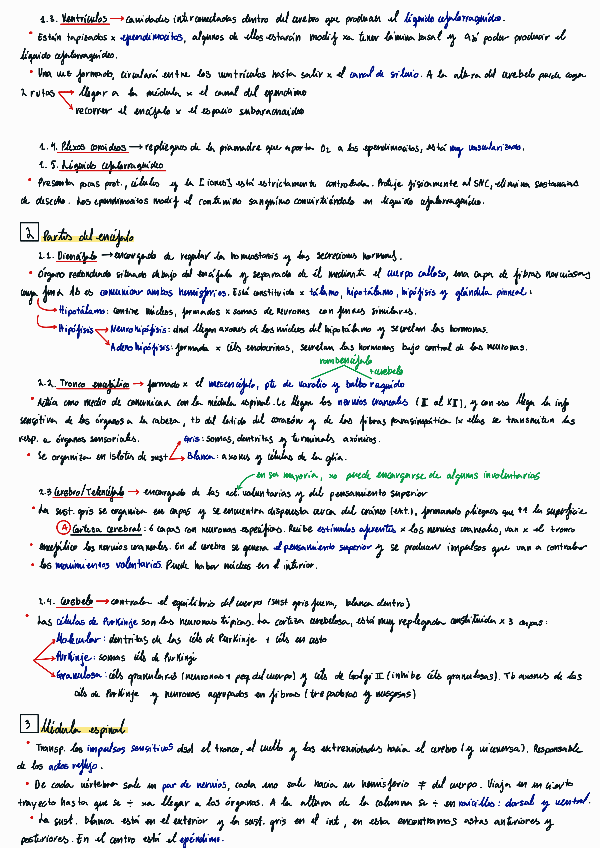 1.3. Ventrículos → cavidades interconectadas dentro del cerebro que producen el líquido cefalorraquídeo.
• Están tapizados x ependimocitos, algunos de ellos estarán modif xa tener lámina basal y así poder producir el
líquido cefalorraquídeo.
• Una vez formado, circulará entre los ventrículos hasta salir x el canal de silvio. A la altura del cerebelo puede coger
2 rutas → llegar a la médula x el canal del epéndimo
→ recorrer el encéfalo x el espacio subaracnoideo
1.4. Plexos coroideos → repliegues de la piamadre que aporta O2 a los ependimocitos, está muy vascularizado.
1.5. Líquido cefalorraquídeo
• Presenta pocas prot., células y la [iones] está estrictamente controlada. Protege físicamente al SNC, elimina sustancias
de desecho. Los ependimocitos modif el contenido sanguíneo convirtiéndolo en líquido cefalorraquídeo.
2 Partes del encéfalo
2.1. Diencéfalo → encargado de regular la homeostasis y las secreciones hormonas.
• Órgano redondeado situado debajo del encéfalo y separado de él mediante el cuerpo calloso, una capa de fibras nerviosas
cuya func. tb es comunicar ambos hemisferios. Está constituido x tálamo, hipotálamo, hipófisis y glándula pineal:
→ Hipotálamo: contiene núcleos, formados x somas de neuronas con funciones similares.
→ Hipófisis → Neurohipófisis: dnd llegan axones de los núcleos del hipotálamo y secretan las hormonas.
→ Adenohipófisis: formada x céls endocrinas, secretan las hormonas bajo control de las neuronas.
rombencéfalo
+cerebelo
2.2. Tronco encefálico → formado x el mesencéfalo, pte de varolio y bulbo raquídeo
• Actúa como medio de comunicación con la médula espinal. Le llegan los nervios craneales (III al XII), y con eso llega la info
sensitiva de los órganos a la cabeza, tb del latido del corazón y de las fibras parasimpáticas (x ellas se transmiten las
resp. a órganos sensoriales.
• Se organiza en islotes de sust → Gris: somas, dendritas y terminales axónicos.
→ Blanca: axones y células de la glía.
en su mayoría, xo puede encargarse de algunas involuntarias
2.3 Cerebro/Telencéfalo → encargado de las act. voluntarias y del pensamiento superior
• La sust. gris se organiza en capas y se encuentra dispuesta cerca del cráneo (ext.), formando pliegues que ↑↑ la superficie
A Corteza cerebral: 6 capas con neuronas específicas. Recibe estímulos aferentes x los nervios craneales, van x el tronco
• encefálico los nervios craneales. En el cerebro se genera el pensamiento superior y se producen impulsos que van a controlar
• los movimientos voluntarios. Puede haber núcleos en el interior.
2.4. Cerebelo → controlan el equilibrio del cuerpo (sust gris fuera, blanca dentro)
• Las células de Purkinje son las neuronas típicas. La corteza cerebelosa, está muy replegada constituida x 3 capas:
→ Molecular: dendritas de las céls de Purkinje + céls en cesto
→ Purkinje: somas céls de Purkinje
→ Granulosa: céls granulares (neuronas + peq del cuerpo) y céls de Golgi II (inhibe céls granulosas). Tb axones de las
céls de Purkinje y neuronas agrupadas en fibras (trepadoras y musgosas)
3 Médula espinal
• Transp. los impulsos sensitivos dsd el tronco, el cuello y las extremidades hacia el cerebro (y viceversa). Responsable
de los actos reflejo.
• De cada vértebra sale un par de nervios, cada uno sale hacia un hemisferio ≠ del cuerpo. Viaja en un cierto
trayecto hasta que se ÷ xa llegar a los órganos. A la altura de la columna se ÷ en raicillas: dorsal y ventral.
• La sust. blanca está en el exterior y la sust. gris en el int, en esta encontramos astas anteriores y
posteriores. En el centro está el epéndimo.